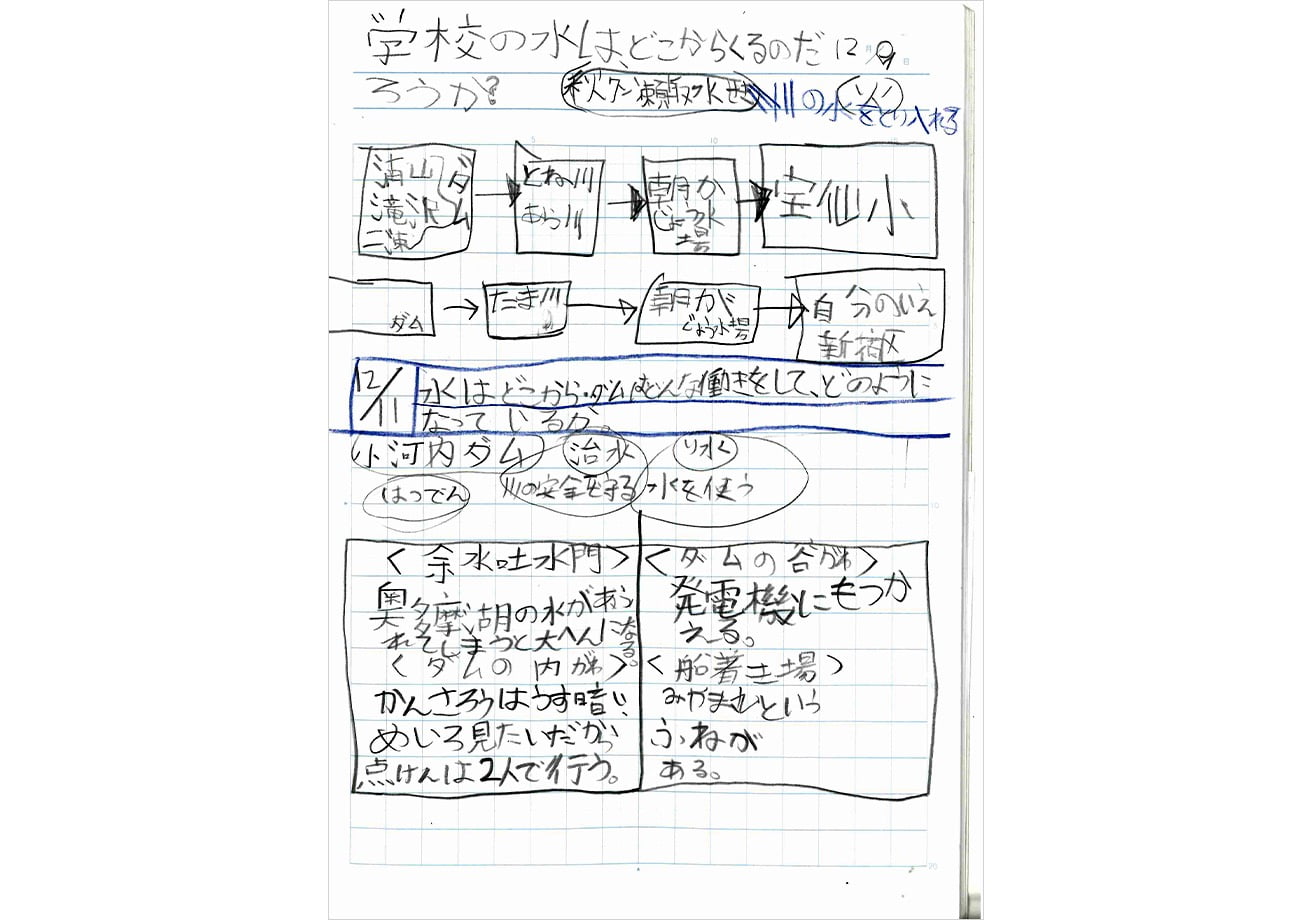 学校の水は、どこからくるのだ 12/9
ろうか?
秋ケ瀬取水せき 川の水
をとり入れる
浦山ダム
滝沢
二瀬
とね川
あら川
朝か
じょう水
場
宝仙小
ダム
たま川
朝が
じょう水場
自分のいえ
新宿区
12/11
水はどこから・ダムはどんな働きをして、どのように
なっているか。
小河内ダム 治水 り水
はつでん 川の安全を守る 水を使う
<余水吐水門>
奥多摩湖の水があふ
れてしまうと大へんになる。
<ダムの内がわ>
かんさろうはうす暗い、
めいろ見たいだから
点けんは2人で行う。
<ダムの谷がわ>
発電機にもつか
える。
<船着き場>
みやまむという
ふねが
ある。